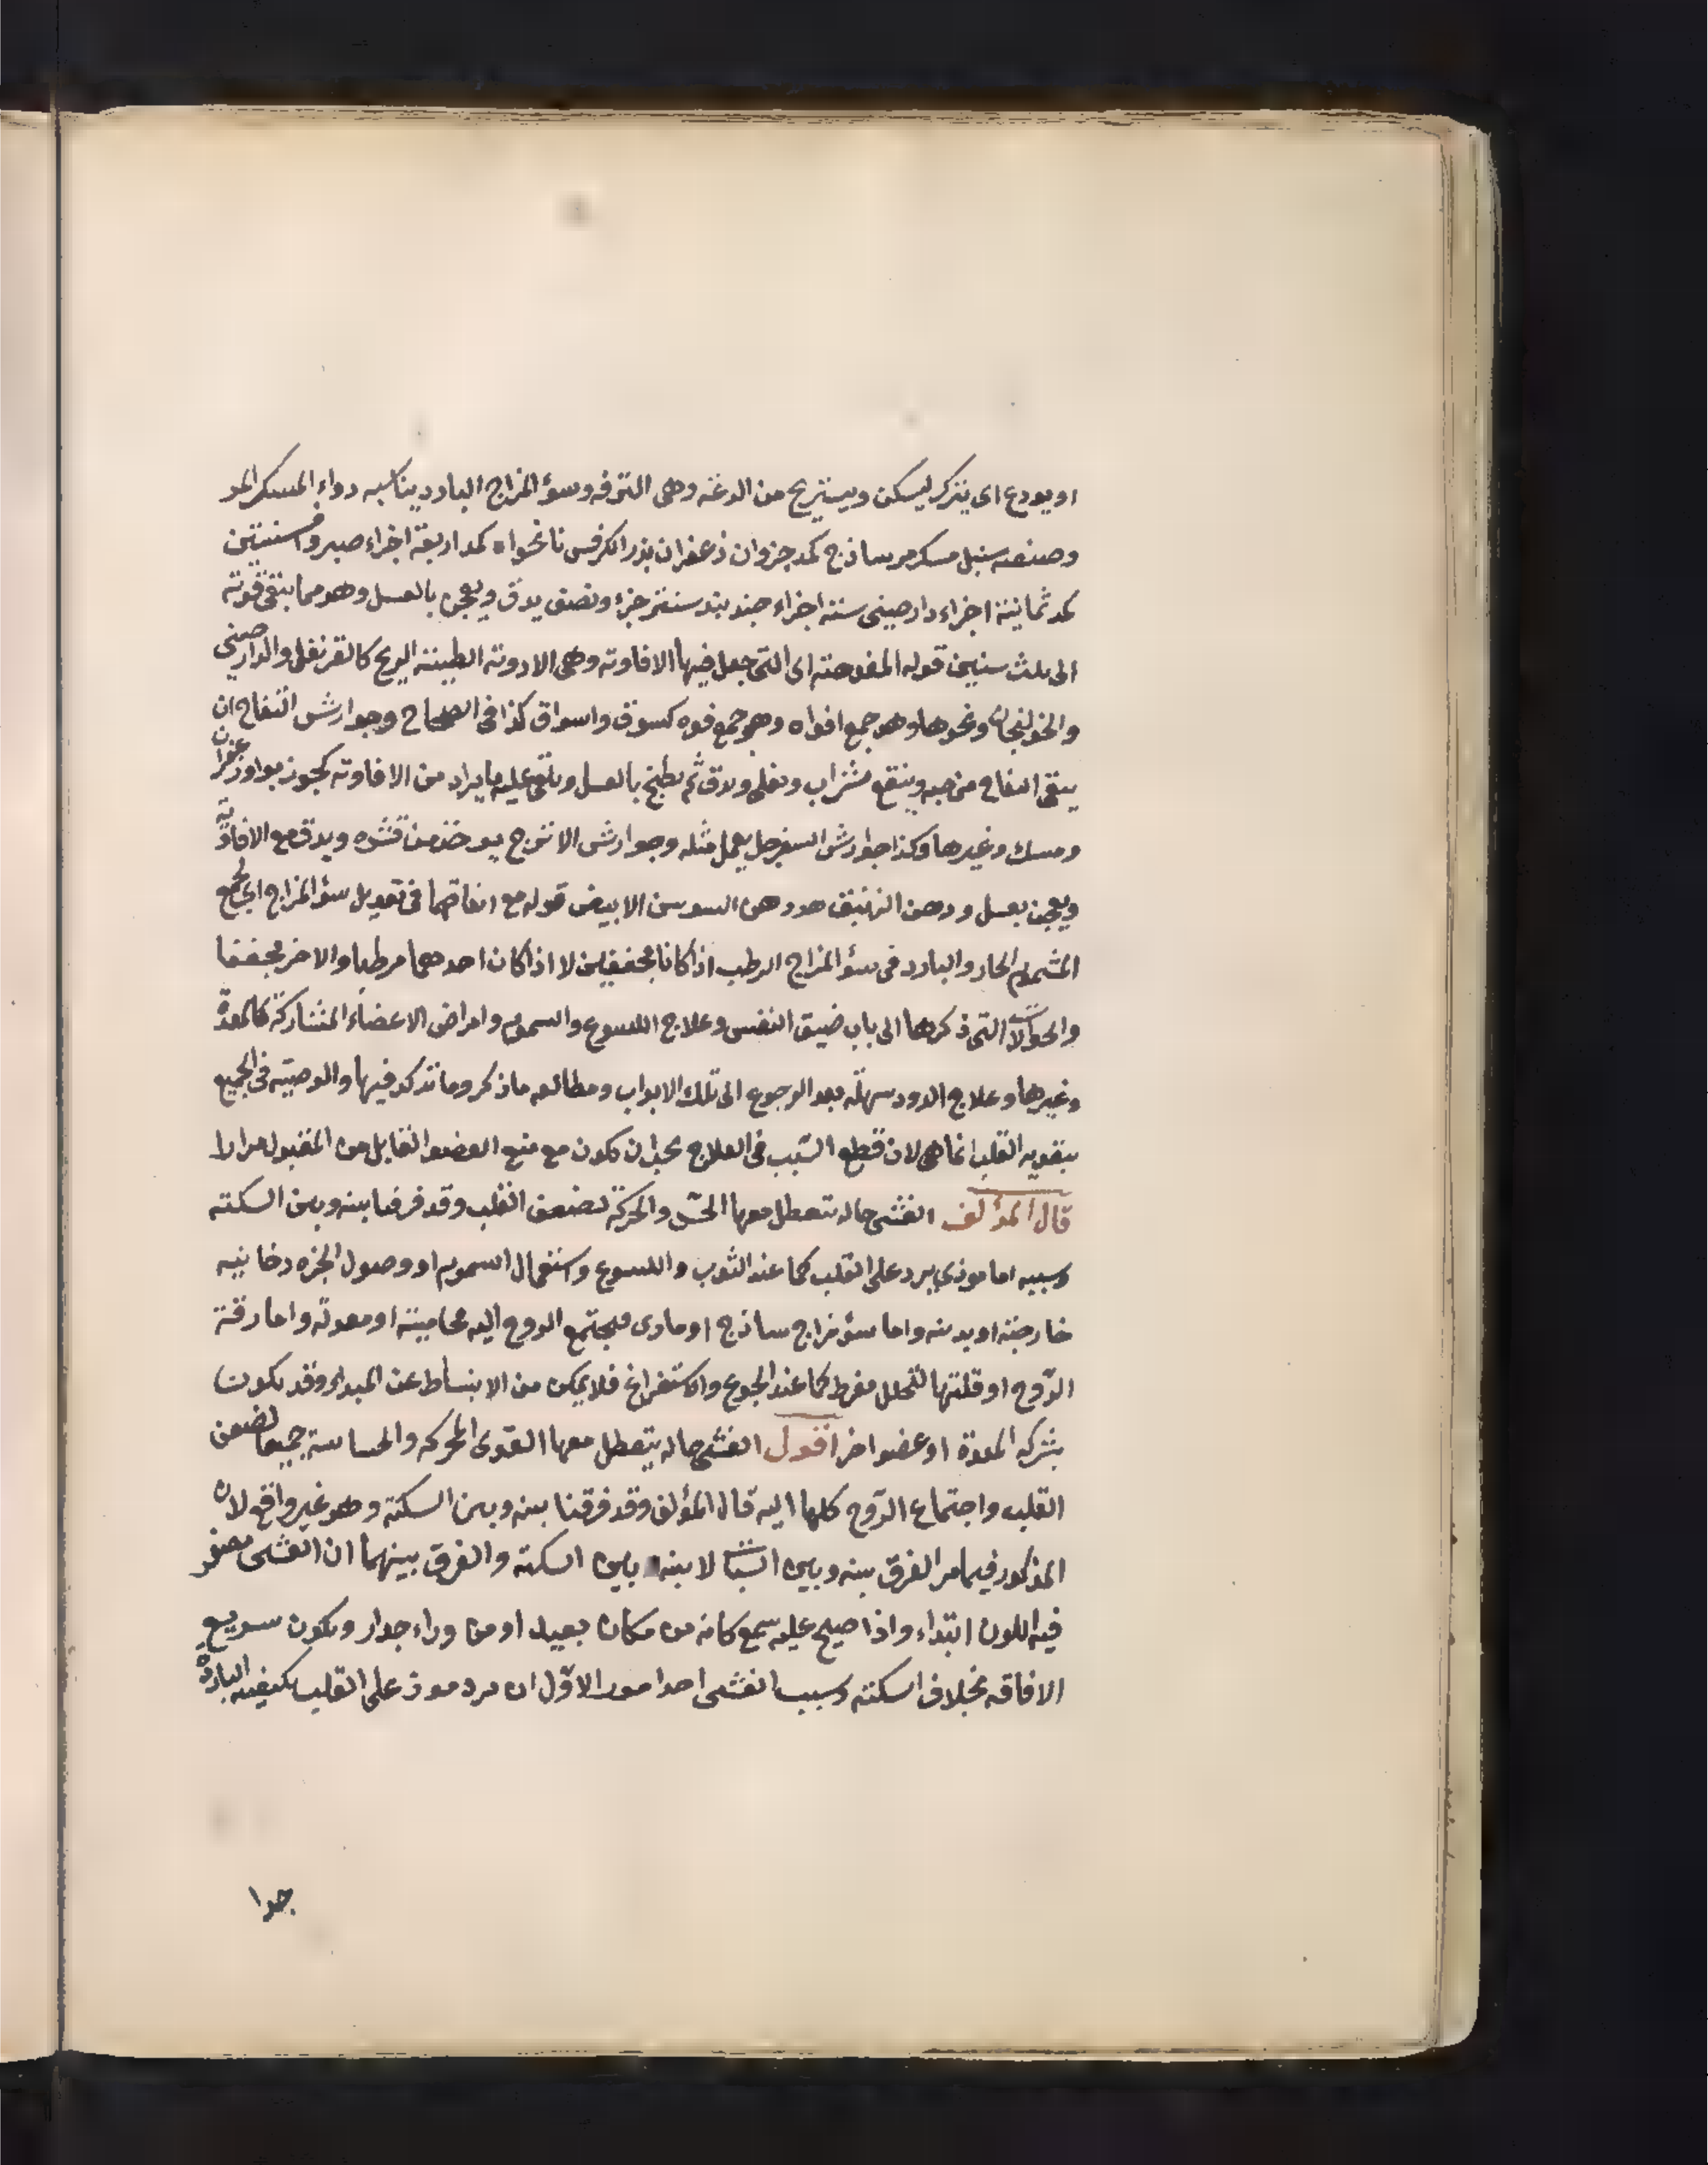 او يودع اى يترك ليسكن ويستريح من الدغة وهى الترفه وسؤ المزاج البارد يناسبه دواء المسك المر
وصنعته سنبل مسك مر ساذج كمد جزوان زعفران بزر الكرفس نانخواه كمد اربعة اجزاء صبر وافسنتين
كمد ثمانية اجزاء دارصينى ستة اجزاء جندبيدستر جزء ونصف يدق ويعجن بالعسل وهو مما يبقى قوته
الى ثلث سنين قوله المفوهته اى التى جعل فيها الافاوته وهى الادوته الطيبته الريح كالقرنفل والدارصينى
والخولنجان ونحوها وهو جمع افواه وهو جمع فوه كسوق واسواق كذا فى الصحاح وجوارش التفاح ان
ينقى التفاح من حبه وينقع فى شراب ويغلى ويدق ثم يطبخ بالعسل ويلقى عليه ما يراد من الافاوته كجوز بوا وزعفران
ومسك وغيرها وكذا جوارش السفرجل يعمل مثله وجوارش الاترج يوخذ من قشره ويدق مع الافاوته
ويعجن بعسل ودهن الزنبق هو دهن السوسن الابيض قوله مع اتفاقهما فى تعديل سؤ المزاج اى يجمع
المشموم الحار والبارد فى سؤ المزاج الرطب اذا كانا مجففين لا اذا كان احدهما مرطبا والاخر مجففا
والحوالات التى ذكرها الى باب ضيق النفس وعلاج اللسوع والسموم وامراض الاعضاء المشاركة كالمعدة
وغيرها وعلاج الدود سهلة بعد الرجوع الى تلك الابواب ومطالعه ما ذكر وما تذكر فيها والوصيته فى الجميع
بتقويه القلب انما هى لان قطع السبب فى العلاج يجب ان يكون مع منع العضو القابل من القبول مرارا
قال المؤلف الغشى حاله تتعطل معها الحس والحركة لضعف القلب وقد فرقنا بينه وبين السكته
وسببه اما موذى يرد على القلب كما عند الثوب واللسوع واستعمال السموم او وصول ابخره دخانيه
خارجته او بدنه واما سؤ مزاج ساذج او مادى فيجتمع الروح اليه محاميته او معونه واما رقة
الروح او قلتها لتحلل مفرط كما عند الجوع والاستفراغ فلا يمكن من الانبساط عن المبداء وقد يكون
بشركه المعدة او عضو اخر اقول الغشى حاله يتعطل معها القوى المحركه والحساسة جميعا لضعف
القلب واجتماع الروح كلها اليه قال المؤلف وقد فرقنا بينه وبين السكته وهو غير واقع لان
المذكور فيما مر الفرق بينه وبين السبات لا بينه وبين السكته والفرق بينهما ان الغشى مصفر
فيه اللون ابتداء واذا صيح عليه سمع كانه من مكان بعيد او من وراء جدار ويكون سريع
الافاقه بخلاف السكته وسبب الغشى احد امور الاول ان يرد موذ على القلب بكيفيته الباردة
جدا